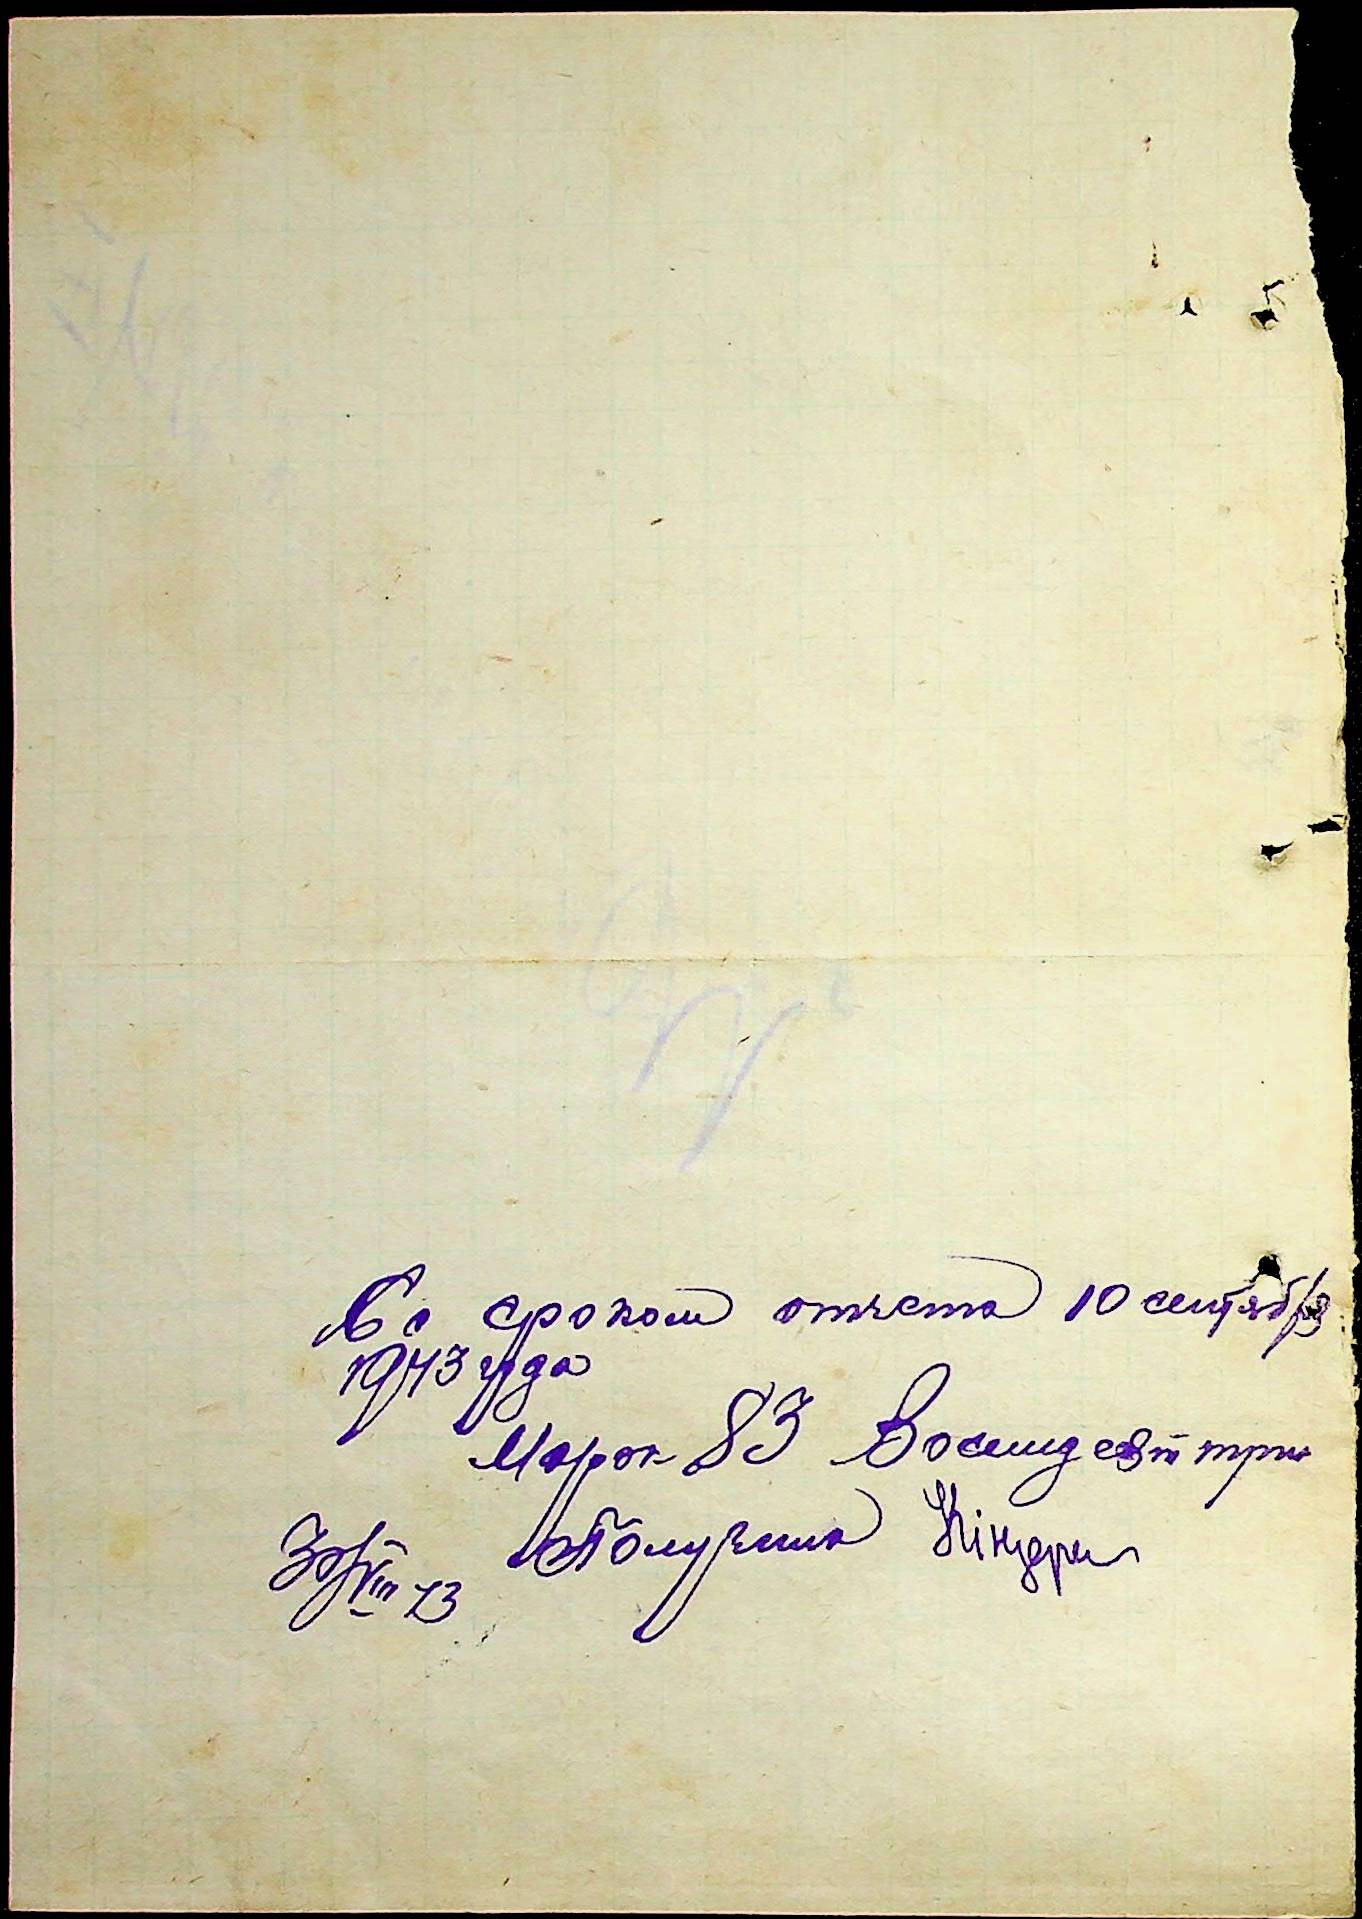 Со сроком отчета 10 сентября
1943 года
Марок 83 Восемдесят три
Получила
30/VIII 43